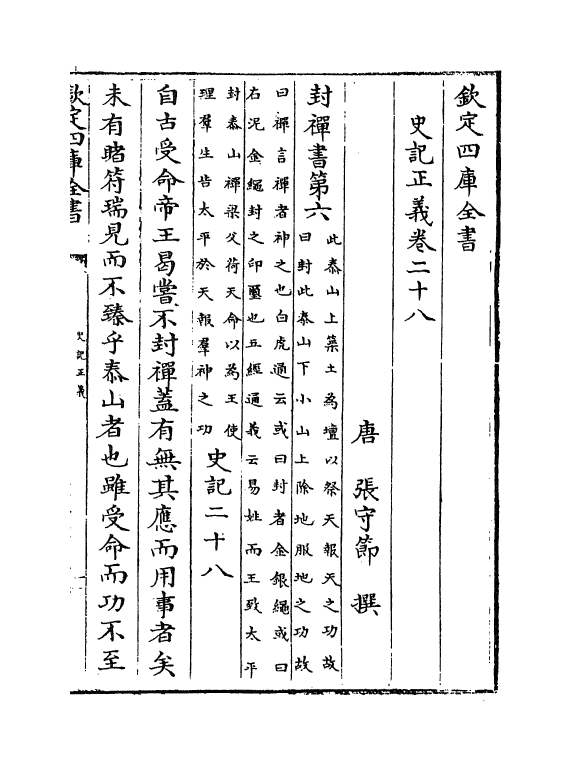 欽定四庫全書
史記正義卷二十八
唐 張守節 撰
封禪書第六
此泰山上築土為壇以祭天報天之功故
曰封此泰山下小山上除地服地之功故
曰禪言禪者神之也白虎通云或曰封者金銀繩或曰
右泥金繩封之印璽也五經通義云易姓而王致太平
封泰山禪梁父荷天命以為王使
理羣生告太平於天報羣神之功
史記二十八
自古受命帝王曷嘗不封禪蓋有無其應而用事者矣
未有睹符瑞見而不臻乎泰山者也雖受命而功不至
欽定四庫全書
史記正義